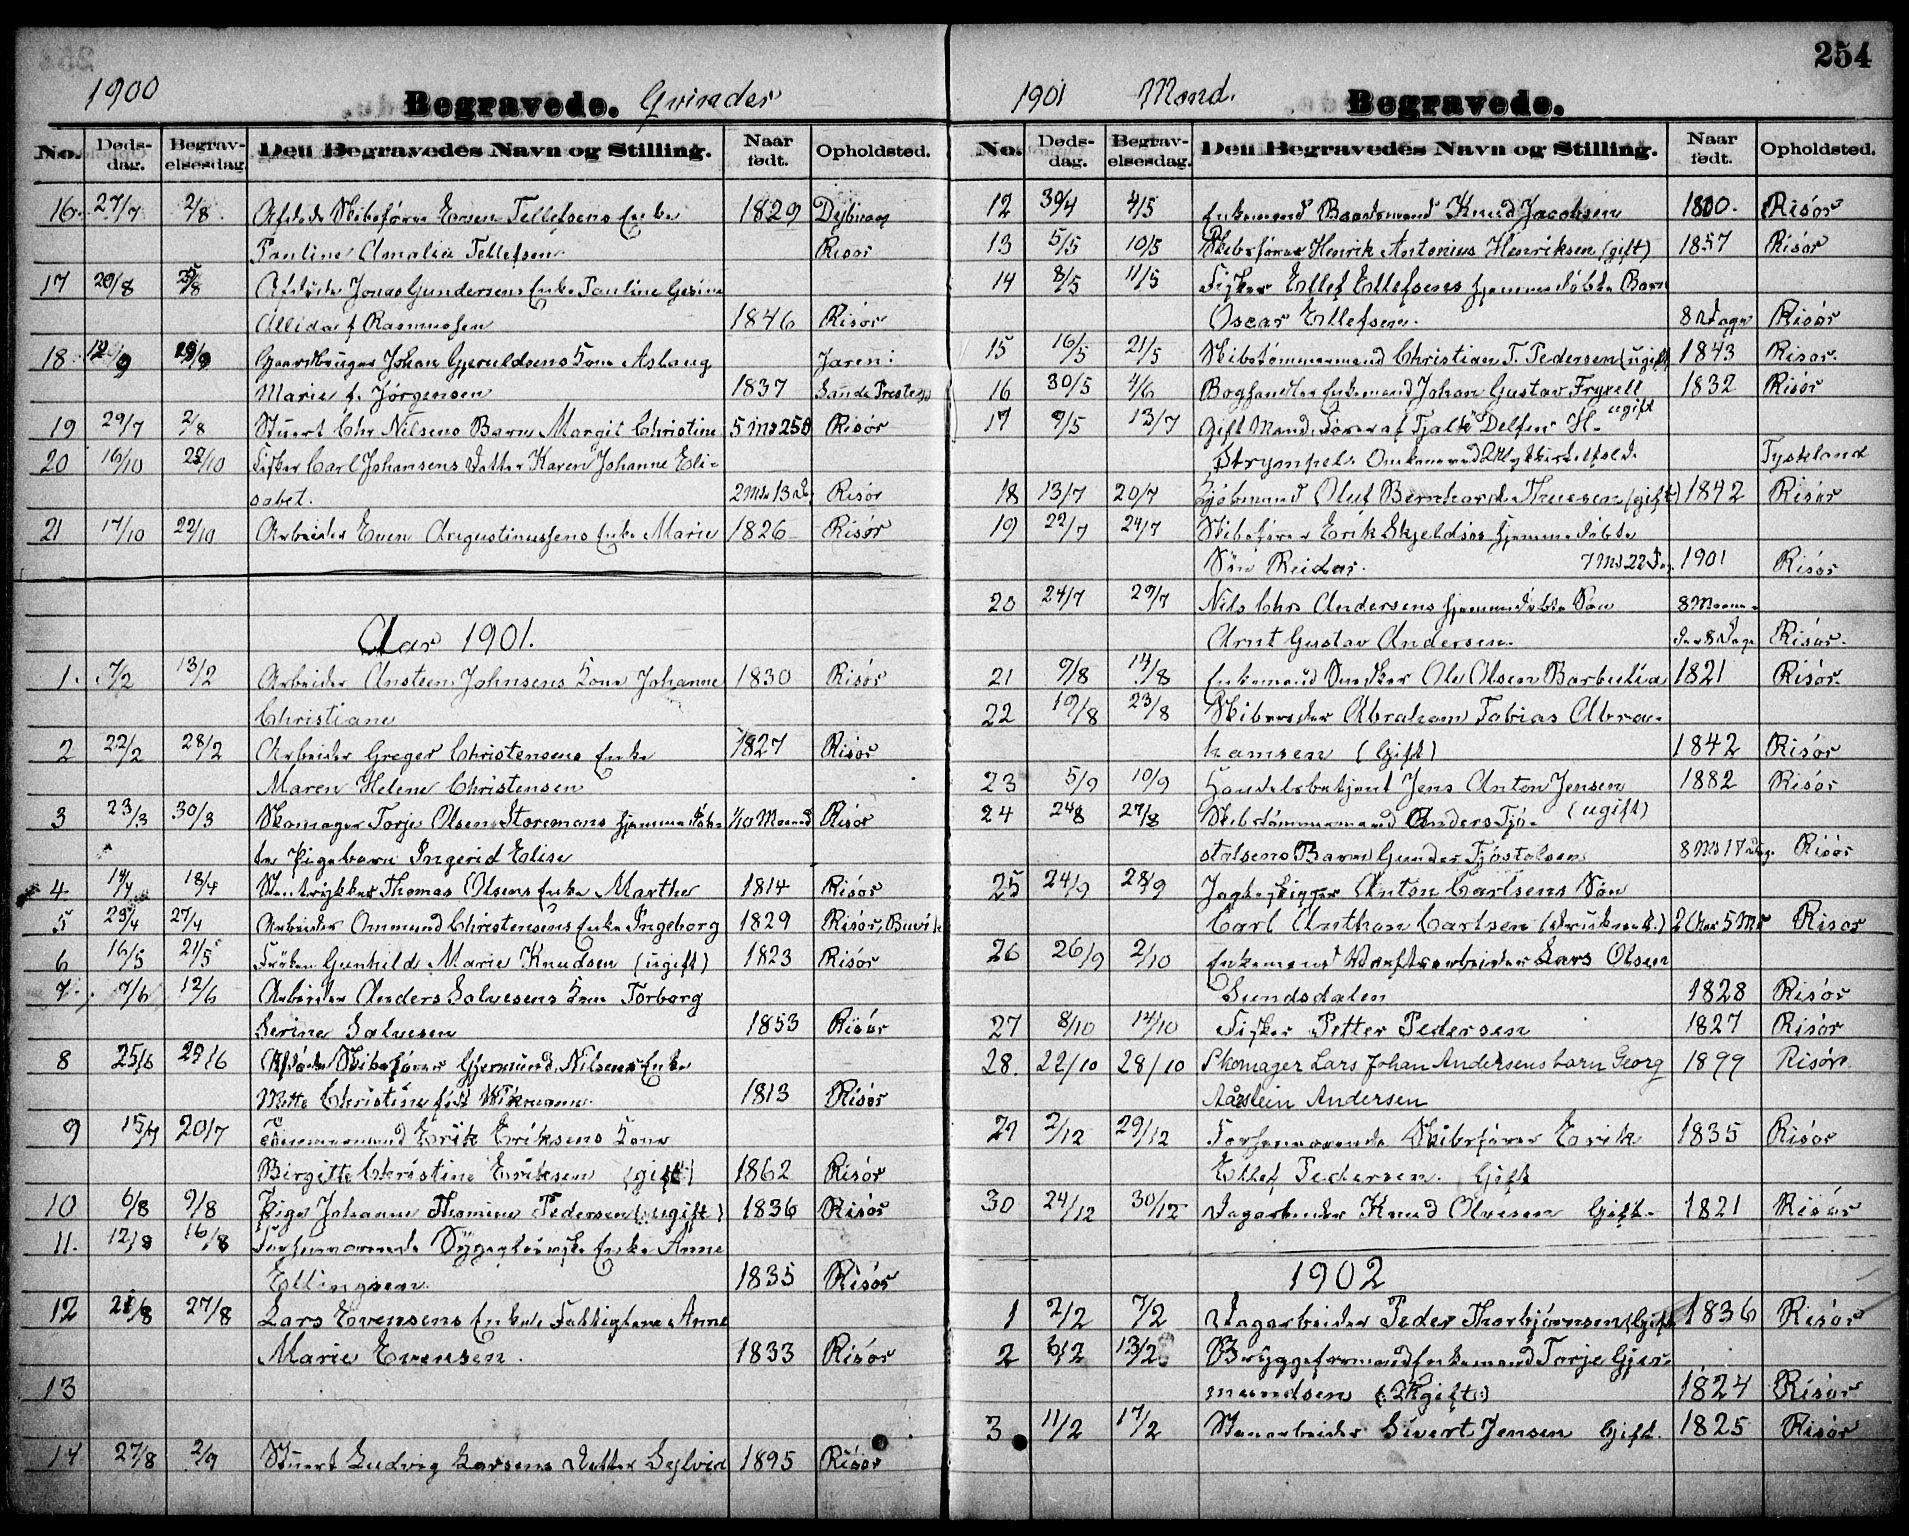 254
1900 Begravede. Qvinder
No. Døds-dag. Begrav-elsesdag. Den Begravedes Navn og Stilling. Naar født. Opholdsted.
16. 27/7 2/8 Afdøde Skibsfører Tellefsens Enke 1829
Pauline Amalia Tellefsen Risør
17 20/8 Afdøde Jonas Gundersens Enke Pauline Gesine
Allida f. Rasmussen 1846 Risør
18. Gaardbruger Johan Gjeruldsens Kone Aslaug Jaren:
Marie f. Jørgensen 1837 Sande
19 29/7 2/8 Stuert Chr Nilsens Barn Margit Christine 5 Md 25 D Risør
20 16/10 Fisker Carl Johansens Datter Karen Johanne Eli-
sabet. 2 Md 13 D. Risør
21 17/10 22/10 Arbeider Even Augustinussens Enke Marie 1826 Risør
Aar 1901.
1. 7/2 13/2 Arbeider Ansteen Johnsens Kone Johanne 1830 Risør
Christiane
2 22/2 28/2 Arbeider Greger Christensens Enke 1827 Risør
Maren Helene Christensen
3 23/3 30/3 Skomager Torje Olsen Storemons hjemmedøb-
te Pigebarn Ingerid Elise Risør
4. 14/4 18/4 Thomas Olsens Enke Marthe 1814 Risør
5 23/4 27/4 Arbeider Ommund Christensens Enke Ingeborg 1829 Risør,
6 16/5 21/5 Frøken Gunhild Marie Knudsen (ugift) 1823 Risør
7. 7/6 12/6 Arbeider Anders Salvesens Kone Torborg
Serine Salvesen 1853 Risør
8 25/6 29/6 Afdøde Skibsfører Gjermund Nilsens Enke
Mette Christine født 1813 Risør
9 15/7 20/7 Tømmermand Erik Eriksens Kone
Birgitte Christine Eriksen (gift) 1862 Risør
10 6/8 9/8 Pige Johanne Thomine Pedersen (ugift) 1836 Risør
11. 12/8 16/8 Forhenværende Enke Anne
Ellingsen 1835 Risør
12 21/8 27/8 Lars Evensens Enke Fattiglem Anne
Marie Evensen. 1833 Risør
13
14 27/8 2/9 Stuert Ludvig Larsens Datter 1895 Risør
1901 Mænd. Begravede.
No. Døds-dag. Begrav-elsesdag. Den Begravedes Navn og Stilling. Naar født. Opholdsted.
12 30/4 4/5 Enkemand Baadsmand Knud Jacobsen Risør
13 5/5 10/5 Skibsfører Henrik Antonius Henriksen (gift) 1857 Risør
14 8/5 11/5 Fisker Ellef Ellefsens hjemmedøbte Barn
Oscar Ellefsen. 8 Dage Risør
15 16/5 21/5 Skibstømmermand Christian T. Pedersen (ugift) 1843 Risør.
16 30/5 4/6 Boghandler Enkemand Johan Gustav Fryxell 1832 Risør
17 9/5 13/7 Gift Mand, Fører af Tjalk "Delfin" H. ugift
Strympel. Tyskland
18 13/7 20/7 Kjøbmand Oluf Bernhard Thuesen (gift) 1842 Risør
19 22/7 24/7 Skibsfører Erik Skjeldsøs hjemmedøbte
Søn Reidar. 7 Md 22 Dag 1901 Risør
20 24/7 29/7 Nils Chr. Andersens hjemmedøbte Søn 8 Maane-
Arnt Gustav Andersen. der 8 Dage Risør.
21 9/8 14/8 Enkemand Snedker Ole Olsen Barbulia 1821 Risør.
22 19/8 23/8 Skibsreder Abraham Tobias Abra-
hamsen (Gift) 1842 Risør
23 5/9 10/9 Handelsbetjent Jens Anton Jensen 1882 Risør
(ugift)
24 24/8 27/8 Skibstømmermand Anders Tjø-
stolsens Barn Gunder Tjøstolsen 8 Md 17 Dage. Risør
25 24/9 28/9 Jagteskipper Anton Carlsens Søn
Carl Anthon Carlsen (druknet.) 2 Aar 5 Md Risør
26 26/9 2/10 Enkemand Værftsarbeider Lars Olsen
Sundsdalen 1828 Risør
27 8/10 14/10 Fisker Petter Pedersen 1827 Risør
28. 22/10 28/10 Skomager Lars Johan Andersens barn Georg 1899 Risør.
Andersen
29 2/12 29/12 Forhenværende Skibsfører Eerik 1835 Risør
Ellef Pedersen. Gift
30 24/12 30/12 Dagarbeider Knud Olvesen Gift. 1821 Risør
1902
1 2/2 7/2 Dagarbeider Peder Thorbjørnsen (Gift) 1836 Risør
2 6/2 13/2 Bryggeformand Enkemand Torje Gjer-
mundsen 1824 Risør
3 11/2 17/2 Stenarbeider Sivert Jensen Gift. 1825 Risør